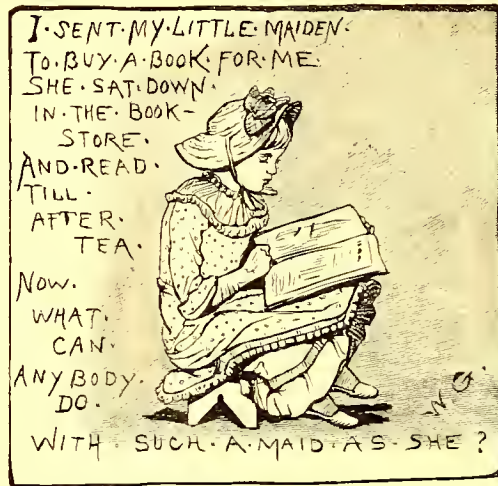 I·SENT·MY·LITTLE·MAIDEN·
TO·BUY·A·BOOK·FOR·ME·
SHE·SAT·DOWN·
IN·THE·BOOK-
STORE·
AND·READ·
TILL·
AFTER·
TEA·
NOW·
WHAT·
CAN·
ANYBODY·
DO·
WITH·SUCH·A·MAID·AS·SHE?